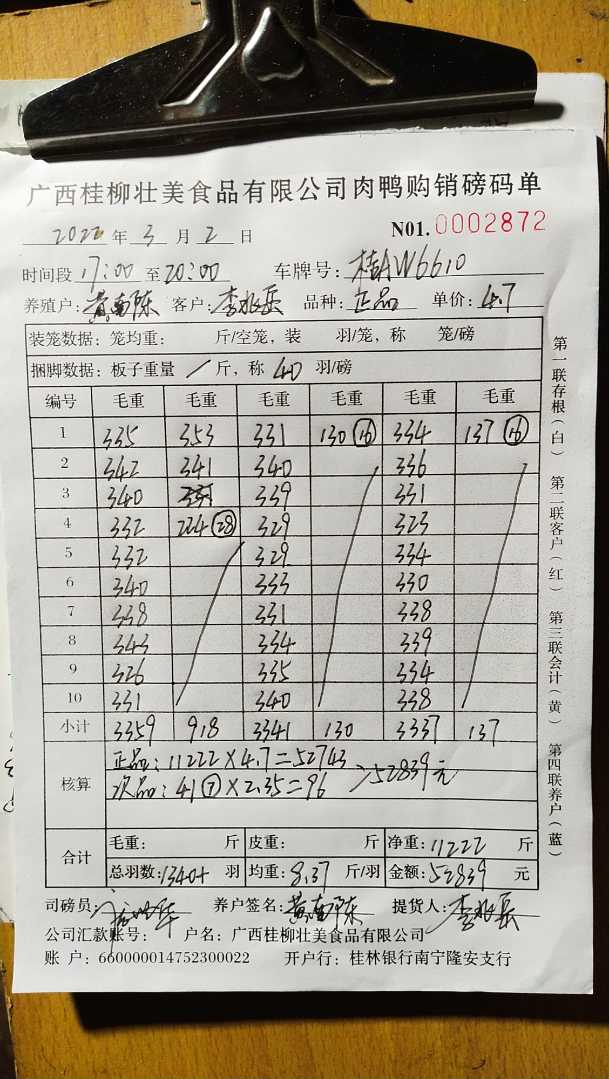 广西桂柳壮美食品有限公司肉鸭购销磅码单
2022 年 3 月 2 日 N01. 0002872
时间段 17:00 至 20:00 车牌号: 桂AW6610
养殖户: 黄南陈 客户: 李 岳 品种: 正品 单价: 4.7
装笼数据: 笼均重: 斤/空笼, 装 羽/笼, 称 笼/磅
捆脚数据: 板子重量 / 斤, 称 40 羽/磅
编号 毛重 毛重 毛重 毛重 毛重 毛重
1 335 353 331 130 (16) 334 137 (16)
2 342 341 340 336
3 340 331 339 331
4 332 224 (28) 329 323
5 332 329 334
6 340 333 330
7 338 331 338
8 343 334 339
9 326 335 334
10 331 340 338
小计 3359 918 3341 130 3337 137
核算 正品: 11222 × 4.7 = 52743
次品: 41 (7) × 2.35 = 96 >52839元
合计 毛重: 斤 皮重: 斤 净重: 11222 斤
总羽数: 1340+ 羽 均重: 8.37 斤/羽 金额: 52839 元
司磅员: 养户签名: 黄南陈 提货人: 李 岳
公司汇款账号: 户名: 广西桂柳壮美食品有限公司
账 户: 660000014752300022 开户行: 桂林银行南宁隆安支行
第一联存根(白) 第二联客户(红) 第三联会计(黄) 第四联养户(蓝)